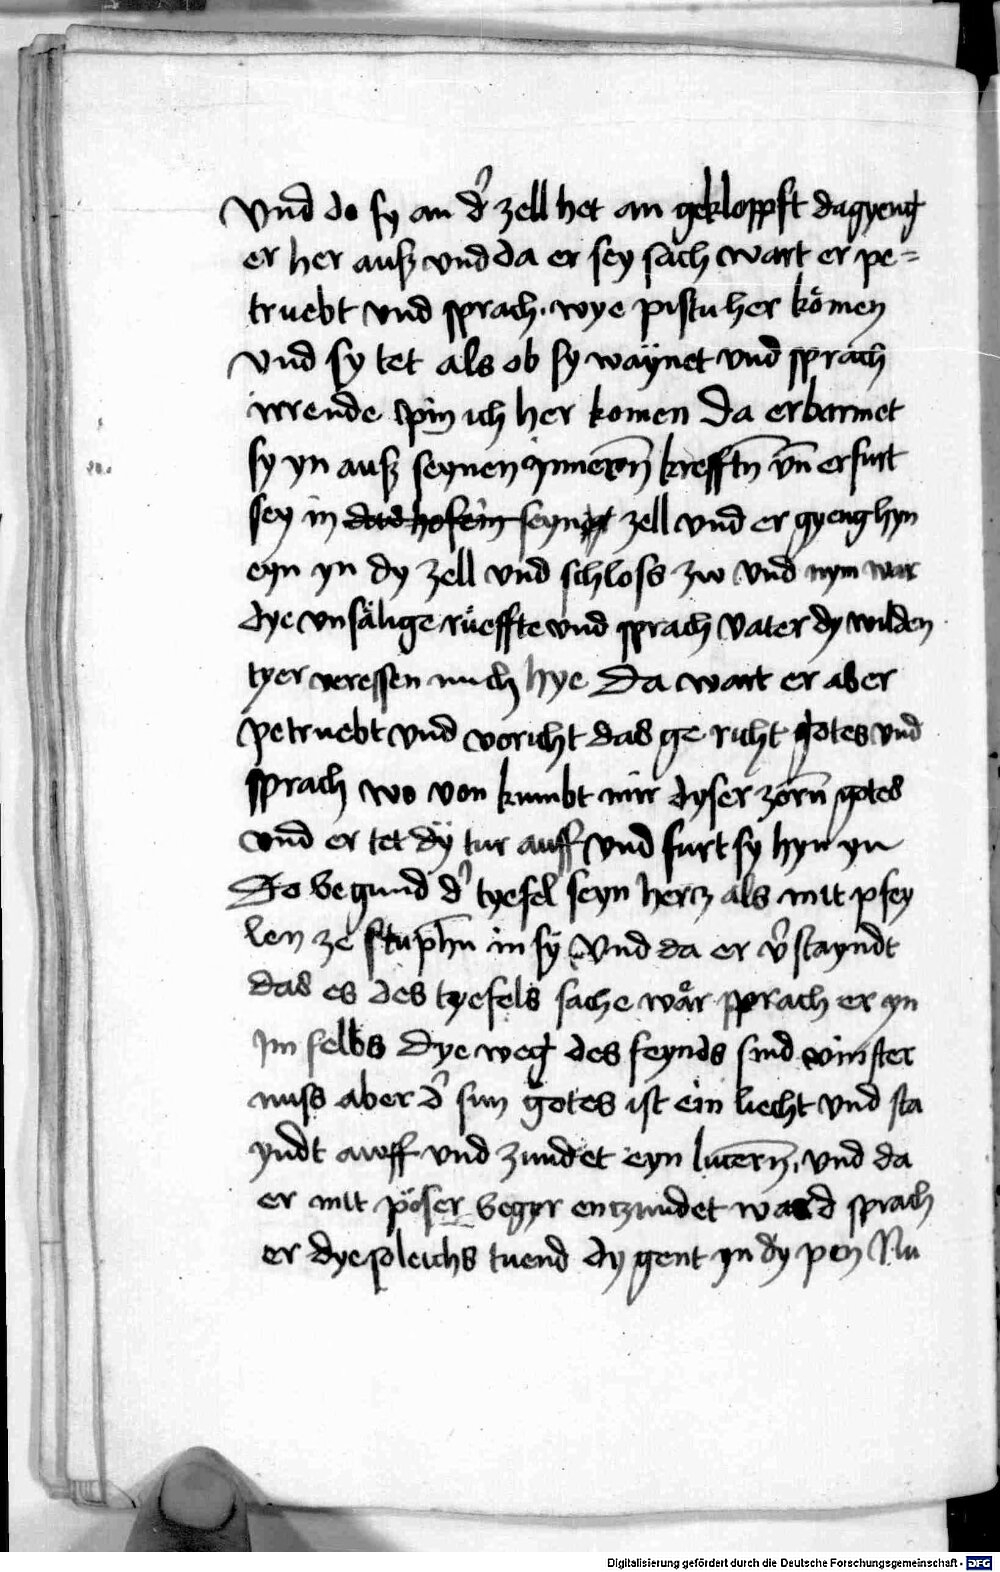 Vnd do sy an d' zell het an gekloppft dagyeng
er her auß vnd da er sey sach wart er pe=
truebt vnd sprach. wye pistu her kömen
Vnd sy tet als ob sy waÿnet vnd sprach
irrende pin ich her komen Da erbarmet
sy yn auß seynen ynnern̄ krefftn̄ vn̄ erfurt
sey in das hofein seyn zell vnd er gyeng hyn
eyn yn dy zell vnd schloss zw Vnd nym war
dye vnsälige rüeffte vnd sprach Vater dy wilden
tyer veressen mich hye Da wart er aber
petruebt vnd voricht das ge richt gotes vnd
sprach wo von kumbt mir dyser zorn̄ gotes
vnd er tet dÿ tur auff vnd furt sy hyn yn
Do begund d' tyefel seyn hercz als mit pfey
len ze stuphn̄ in sÿ Vnd da er v'stayndt
das es des tyefels sache wår sprach er yn
Im selbs Dye weg des feynds sind vinster
nuss aber d' sun gotes ist ein liecht vnd sta
yndt awff vnd zundet eyn lucern̄, vnd da
er mit pöser begyr enczundet ward sprach
er dye soleichs tuend dy gent yn dy pen Nu
Digitalisierung gefördert durch die Deutsche Forschungsgemeinschaft - DFG